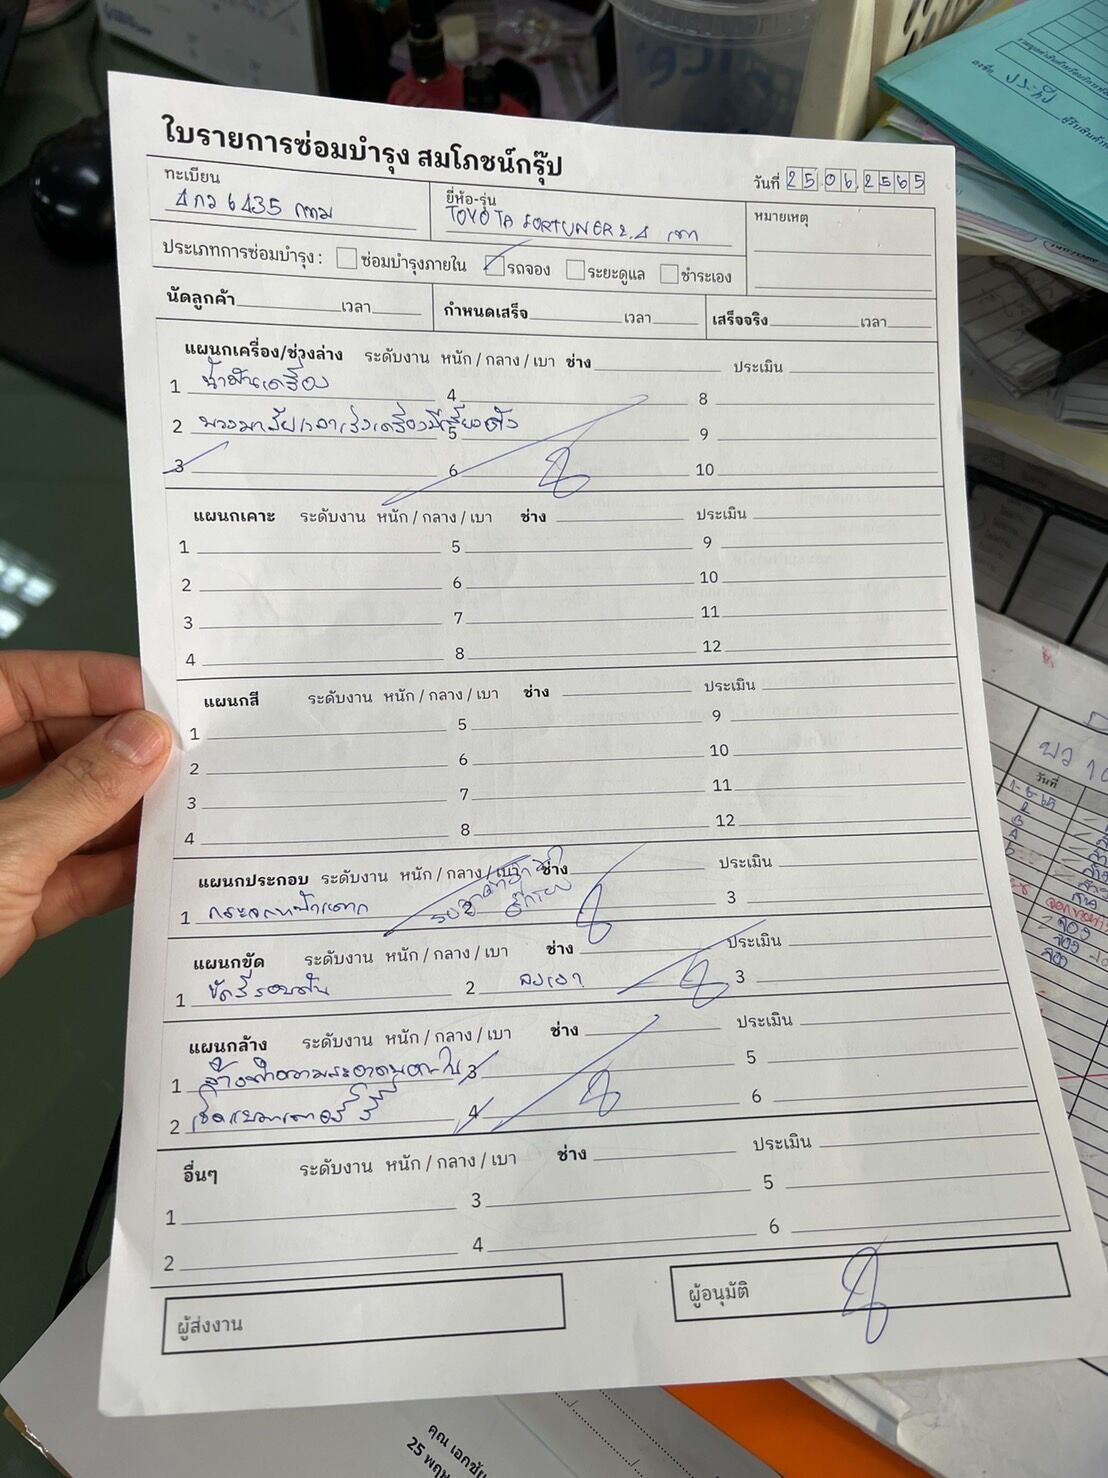 ใบรายการซ่อมบำรุง สมโภชน์กรุ๊ป
วันที่ 25 06 2565
ทะเบียน
6435 กทม
ยี่ห้อ-รุ่น
TOYOTA FORTUNER 2.4 เทา
หมายเหตุ
ประเภทการซ่อมบำรุง : ซ่อมบำรุงภายใน รถจอง ระยะดูแล ชำระเอง
นัดลูกค้า เวลา กำหนดเสร็จ เวลา เสร็จจริง เวลา
แผนกเครื่อง/ช่วงล่าง ระดับงาน หนัก / กลาง / เบา ช่าง ประเมิน
1 น้ำมันเครื่อง 4 8
2 พวงมาลัยเวลาเร่งเครื่องมีเสียงดัง 5 9
3 6 10
แผนกเคาะ ระดับงาน หนัก / กลาง / เบา ช่าง ประเมิน
1 5 9
2 6 10
3 7 11
4 8 12
แผนกสี ระดับงาน หนัก / กลาง / เบา ช่าง ประเมิน
1 5 9
2 6 10
3 7 11
4 8 12
แผนกประกอบ ระดับงาน หนัก / กลาง / เบา ช่าง ประเมิน
1 กระจกหน้าแตก 3
แผนกขัด ระดับงาน หนัก / กลาง / เบา ช่าง ประเมิน
1 ขัดสีรอบคัน 2 ลบเงา 3
แผนกล้าง ระดับงาน หนัก / กลาง / เบา ช่าง ประเมิน
1 ล้างทำความสะอาดนอกใน 3 5
2 เช็คแบตเตอรี่ 4 6
อื่นๆ ระดับงาน หนัก / กลาง / เบา ช่าง ประเมิน
1 3 5
2 4 6
ผู้ส่งงาน
ผู้อนุมัติ